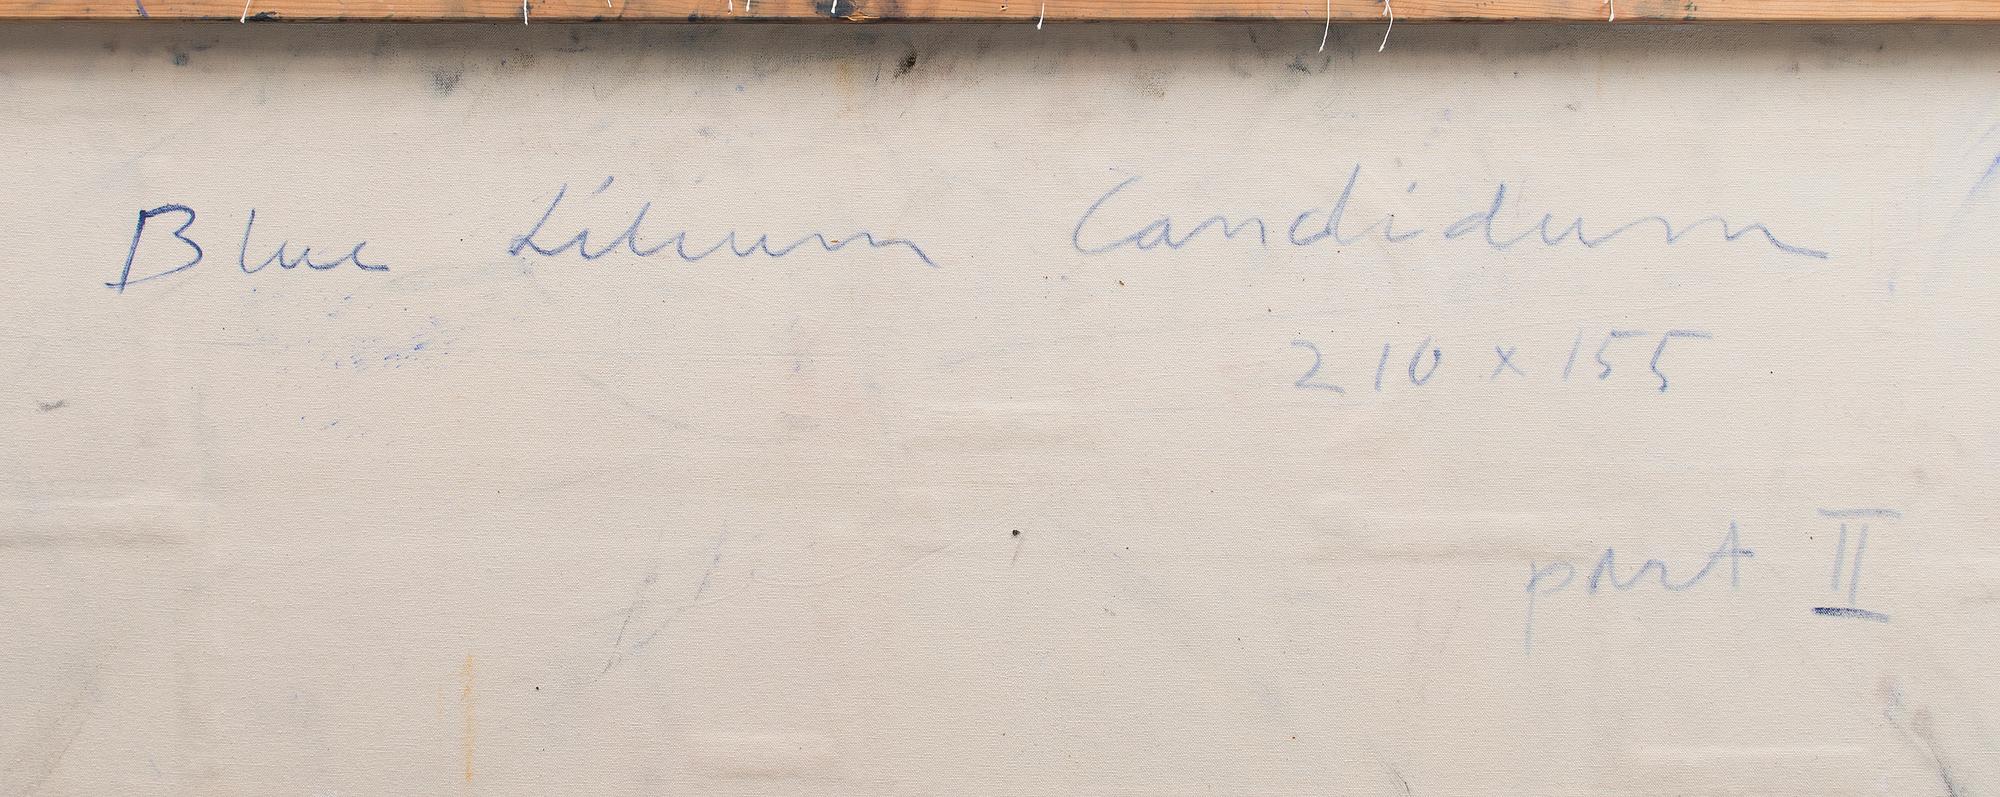 Blue Lilium Candidum
210 x 155
part II